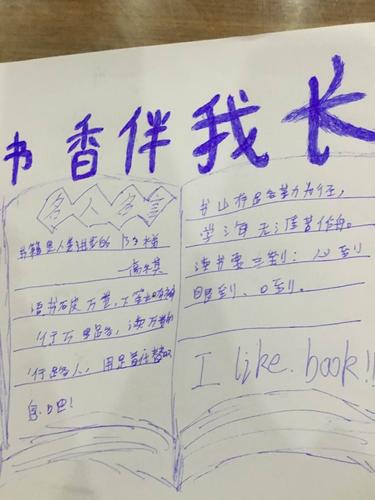 书香伴我长
名人名言
书籍是人类进步的阶梯
—高尔基
读书破万卷,下笔如有神
行万里路,读万卷
行
吧!
书山有路勤为径,
学海无涯苦作舟。
读书要三到:心到
眼到、口到。
I like.book!!